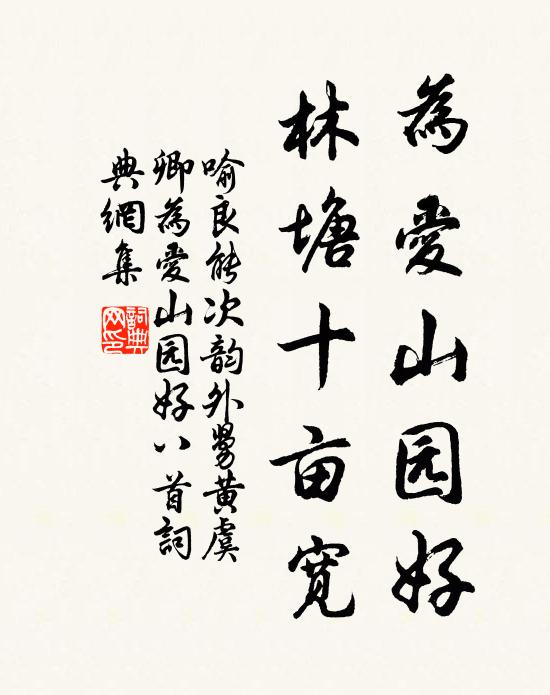 為愛山园好
林塘十亩寬
喻良能次韵外舅黄虞
卿為愛山园好八首詞
典網集
詞典网印